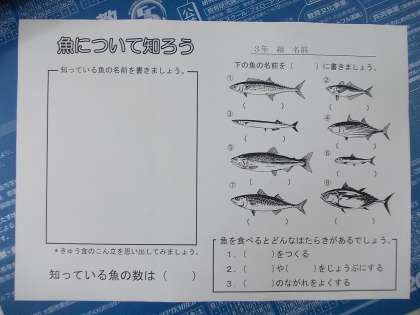 魚について知ろう
3年 組 名前
知っている魚の名前を書きましょう。
*きゅう食のこん立を思い出してみましょう。
知っている魚の数は（　　）
下の魚の名前を（　　）に書きましょう。
①
（　　）
②
（　　）
③
（　　）
④
（　　）
⑤
（　　）
⑥
（　　）
⑦
（　　）
⑧
（　　）
魚を食べるとどんなはたらきがあるでしょう。
1．（　　）をつくる
2．（　　）や（　　）をじょうぶにする
3．（　　）のながれをよくする